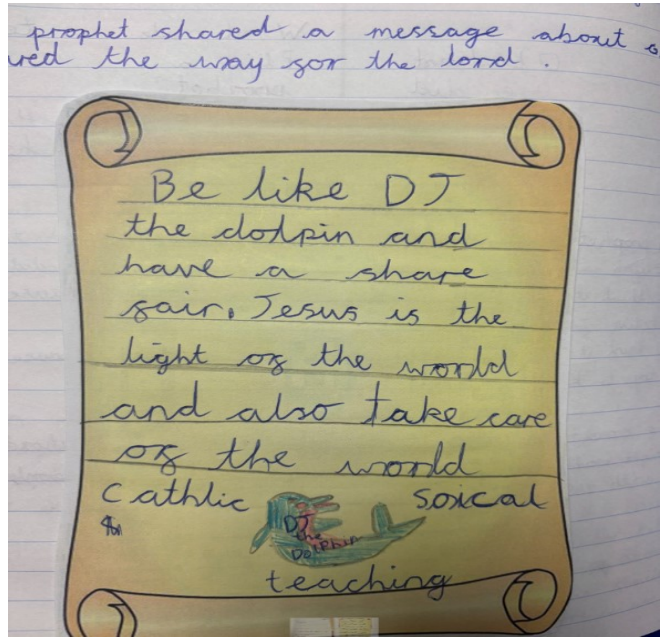 prophet shared a message about
red the way for the lord.
Be like DJ
the dolpin and
have a share
fair. Jesus is the
light of the world
and also take care
of the world
Cathlic Soxical
DJ
the
Dolphin
teaching